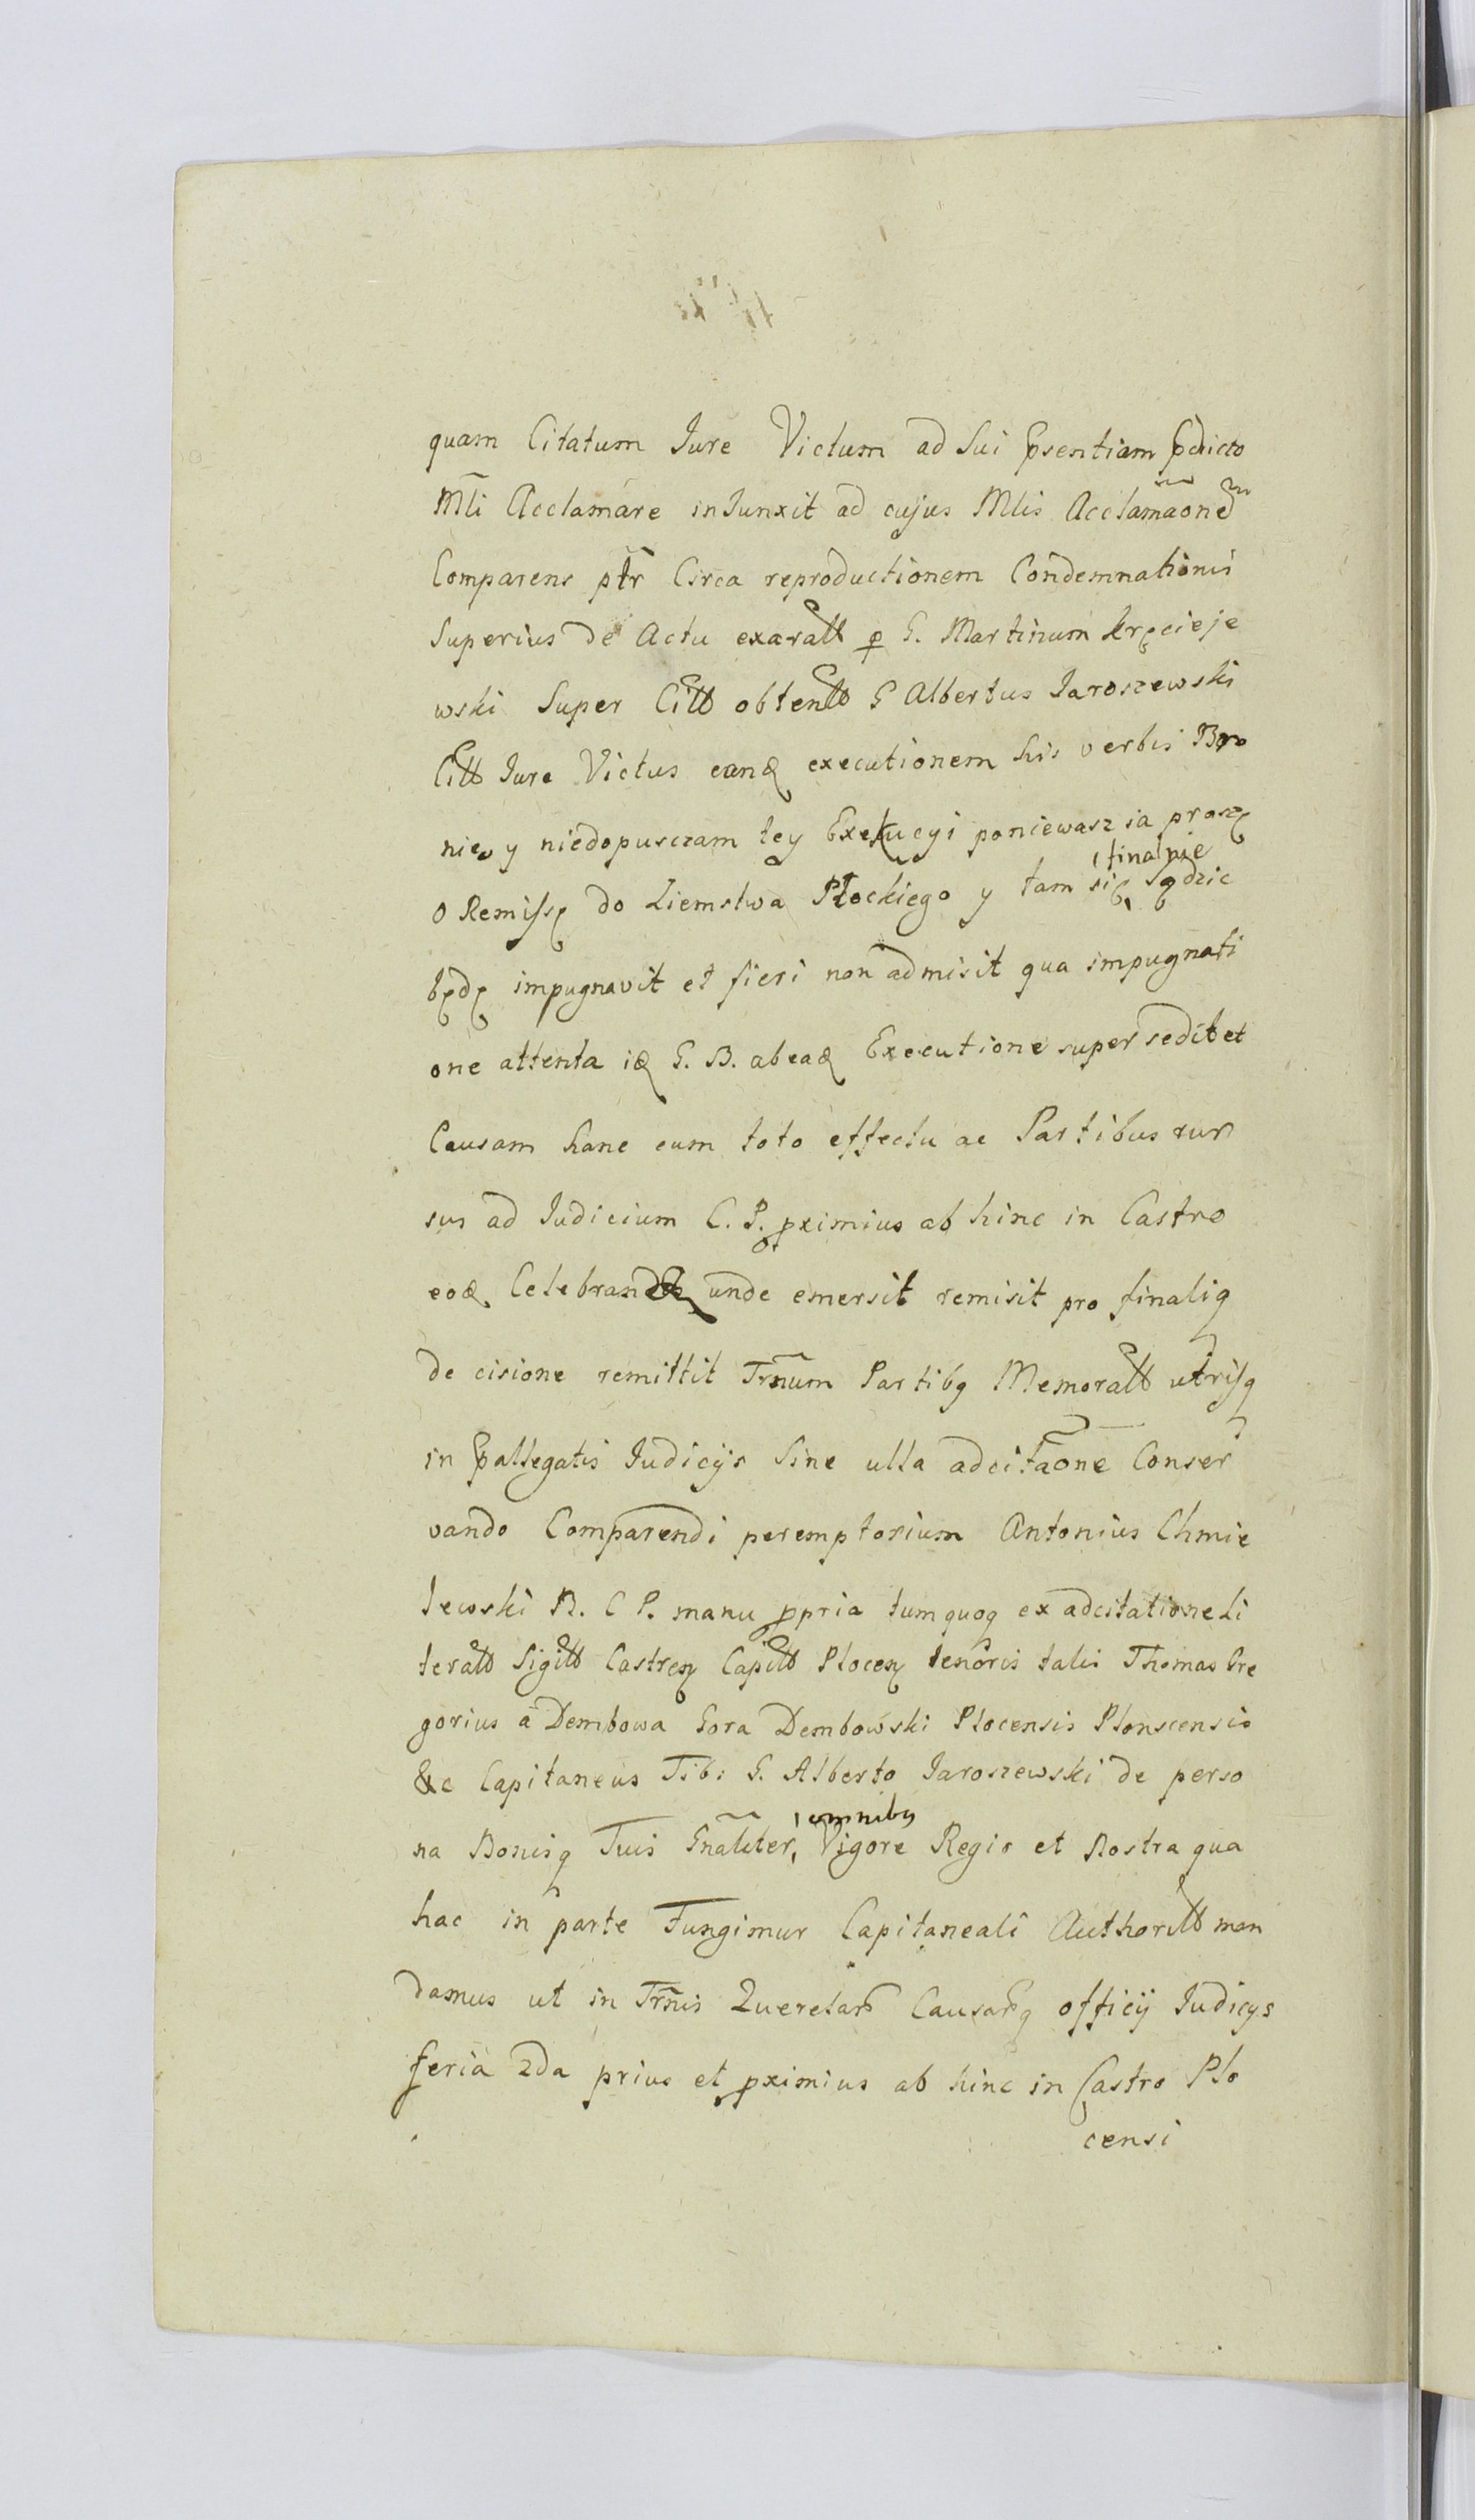 quam Citatum Jure Victum ad Sui Psentiam Pdicto
Mli Acclamare inJunxit ad cujus Mlis Acclamaone
Comparens ptr Circa reproductionem Condemnationis
Superius de Actu exaratt p G. Martinum kręcieje
wski Super Citt obtentt G Albertus Jaroszewski
Citt Jure Victus eanđ executionem his verbis Bro
nie y niedopusczam tey Exekucyi poniewasz ia proszę
o Remissę do Ziemstwa Płockiego y tam się, finalnie Sądzic
będę impugnavit et fieri non admisit qua impugnati
one attenta iđ G. B. abeađ Executione supersedit et
Causam hanc cum toto effectu ac Partibus rur
sus ad Judicium C. P. pximius ab hinc in Castro
eođ Celebrand unde emersit remisit pro finaliq
de cisione remittit Trnum Partibq Memoratt utrisq
in Pallegatis Judicijs Sine ulla adcitaone Conser
vando Comparendi peremptorium Antonius Chmie
lewski B. C P. manu ppria tumquoq ex adcitatione Li
teratt Sigitt Castren Capitt Plocen tenoris talis Thomas Gre
gorius a Dembowa Gora Dembowski Plocensis Plonscensis
&c Capitaneus Tibi G. Alberto Jaroszewski de perso
na Bonisq Tuis Gnaliter, omnibq Vigore Regio et Nostra qua
hac in parte Fungimur Capitaneali Authoritt man
damus ut in Trnis Querelar Causarq officij Judicys
feria 2da prius et pximius ab hinc in Castro Plo
censi